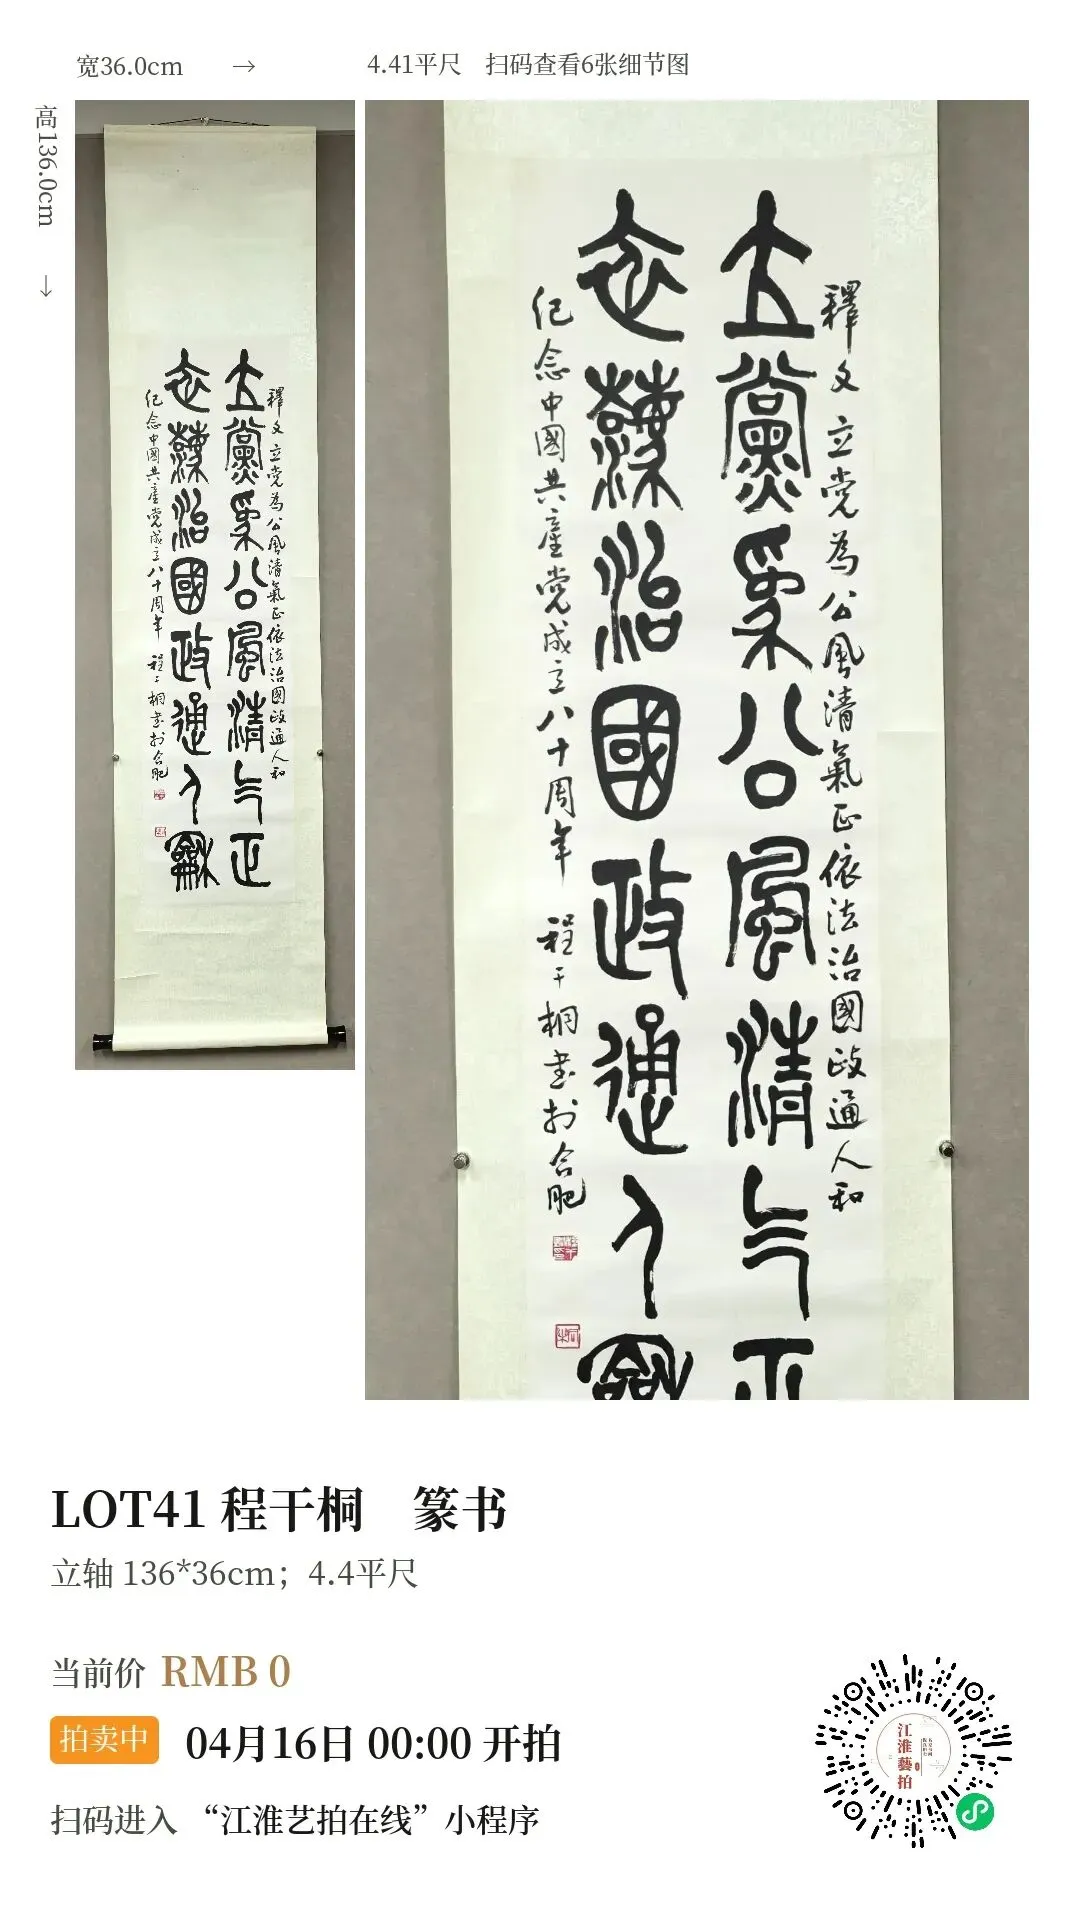 宽36.0cm → 4.41平尺 扫码查看6张细节图
高136.0cm →
釋文 立党為公風清氣正依法治國政通人和
立黨為公風清气正
依灋治國政通人龢
纪念中國共產党成立八十周年 程干桐书於合肥
LOT41 程干桐 篆书
立轴 136*36cm；4.4平尺
当前价 RMB 0
拍卖中 04月16日 00:00 开拍
扫码进入 “江淮艺拍在线”小程序
江淮藝拍